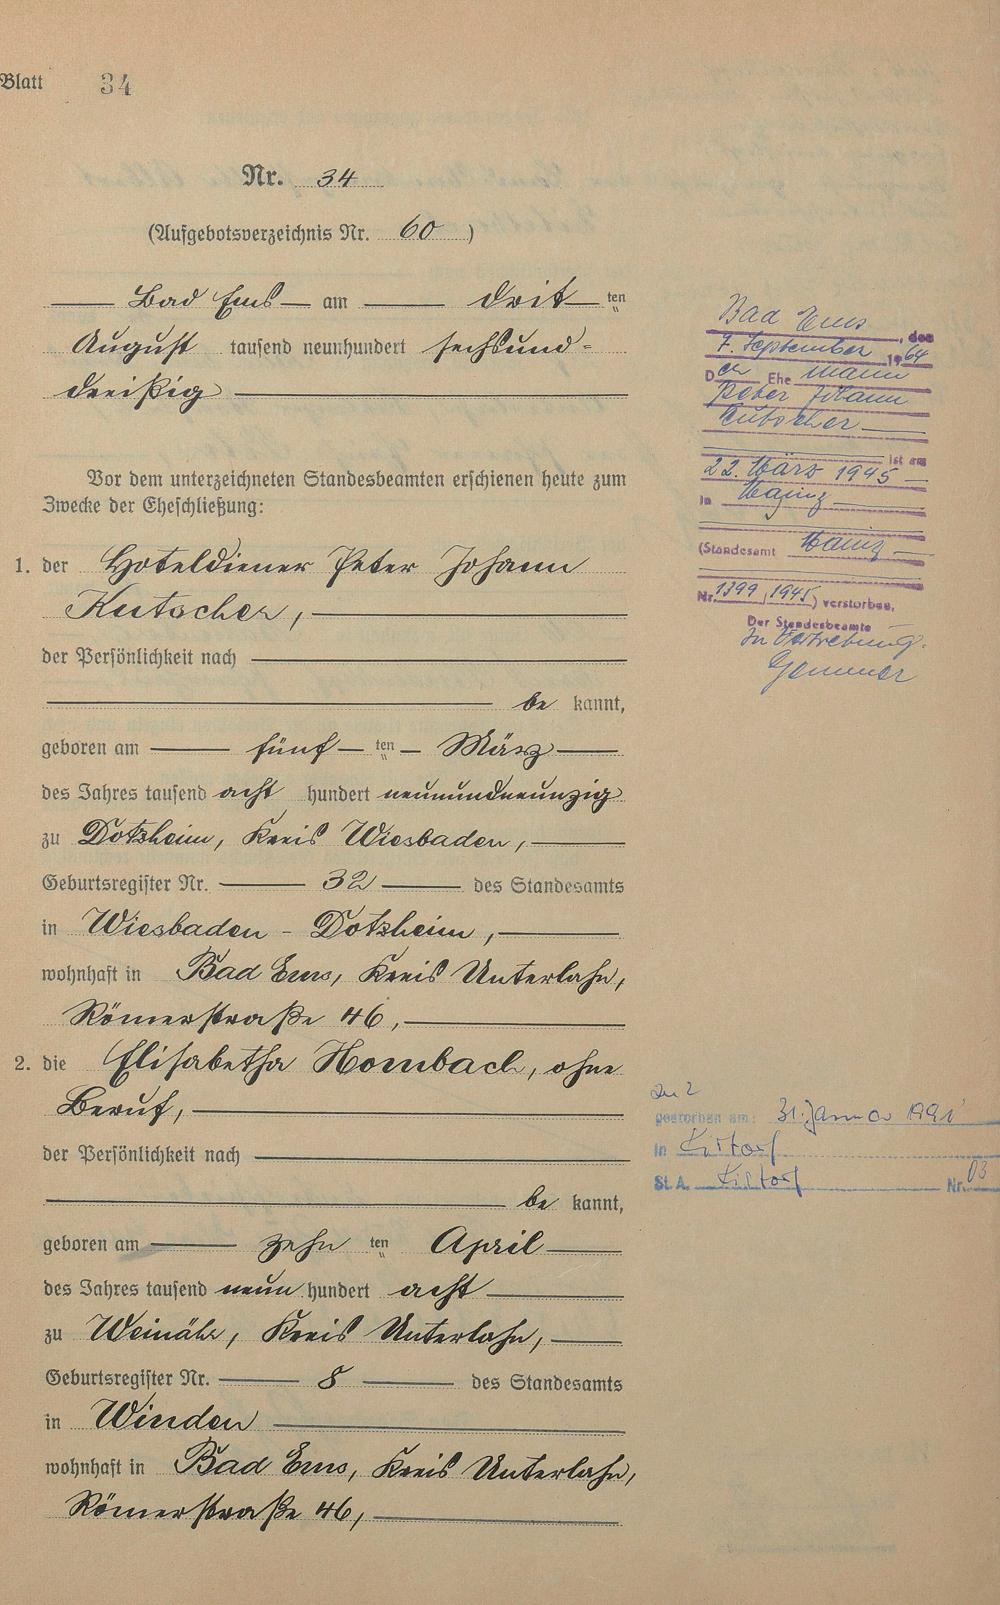 Blatt 34
Nr. 34
(Aufgebotsverzeichnis Nr. 60)
Bad Ems am drit ten
August tausend neunhundert sechsund-
dreißig
Vor dem unterzeichneten Standesbeamten erschienen heute zum
Zwecke der Eheschließung:
1. der Hoteldiener Peter Johann
Kutscher,
der Persönlichkeit nach
be kannt,
geboren am fünf ten März
des Jahres tausend acht hundert neunundneunzig
zu Dotzheim, Kreis Wiesbaden,
Geburtsregister Nr. 32 des Standesamts
in Wiesbaden - Dotzheim,
wohnhaft in Bad Ems, Kreis Unterlahn,
Römerstraße 46,
2. die Elisabetha Hombach, ohne
Beruf,
der Persönlichkeit nach
be kannt,
geboren am zehn ten April
des Jahres tausend neun hundert acht
zu Weinähr, Kreis Unterlahn,
Geburtsregister Nr. 8 des Standesamts
in Winden
wohnhaft in Bad Ems, Kreis Unterlahn,
Römerstraße 46,
Bad Ems, den
7. September 1964
Der Ehe mann
Peter Johann
Kutscher
ist am
22. März 1945
in Mainz
(Standesamt Mainz
Nr. 1399/1945) verstorben.
Der Standesbeamte
In Vertretung.
Zu 2
gestorben am: 31. Januar 1991
in Kirtorf
St. A. Kirtorf Nr. 03